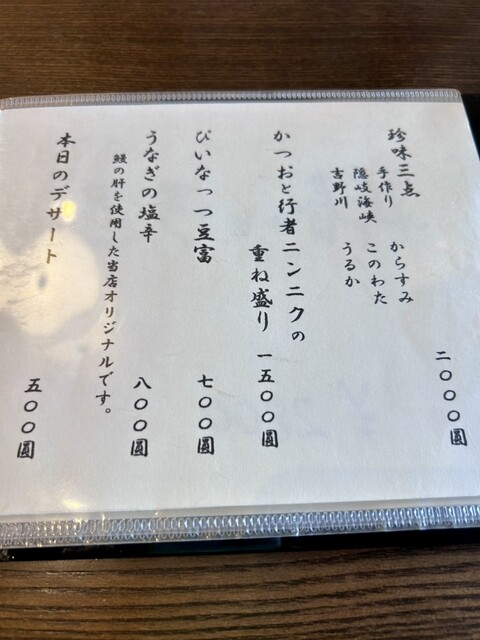 珍味三点
手作り からすみ
隠岐海峡 このわた
吉野川 うるか
二〇〇〇圓
かつおと行者ニンニクの
重ね盛り 一五〇〇圓
ぴいなっつ豆富 七〇〇圓
うなぎの塩辛 八〇〇圓
鰻の肝を使用した当店オリジナルです。
本日のデザート 五〇〇圓